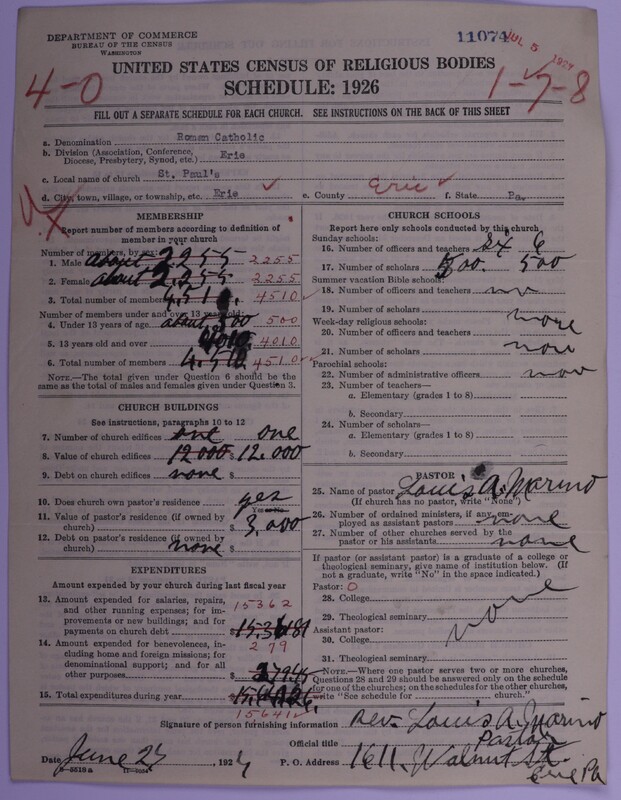 DEPARTMENT OF COMMERCE
BUREAU OF THE CENSUS
WASHINGTON
11074
JUL 5 1927
UNITED STATES CENSUS OF RELIGIOUS BODIES
SCHEDULE: 1926
4-0
1-7-8
FILL OUT A SEPARATE SCHEDULE FOR EACH CHURCH. SEE INSTRUCTIONS ON THE BACK OF THIS SHEET
a. Denomination Roman Catholic
b. Division (Association, Conference, Diocese, Presbytery, Synod, etc.) Erie
c. Local name of church St. Paul's
d. City, town, village, or township, etc. Erie e. County Erie f. State Pa.
MEMBERSHIP
Report number of members according to definition of
member in your church
Number of members, by sex:
1. Male about 2255 2255
2. Female about 2.255 2255
3. Total number of members 4510
Number of members under and over 13 years old:
4. Under 13 years of age about 500 500
5. 13 years old and over 4010 4010
6. Total number of members 4.510 4510
NOTE.—The total given under Question 6 should be the
same as the total of males and females given under Question 3.
CHURCH BUILDINGS
See instructions, paragraphs 10 to 12
7. Number of church edifices one one
8. Value of church edifices 12000 $ 12.000
9. Debt on church edifices none $
10. Does church own pastor's residence yes
Yes or No
11. Value of pastor's residence (if owned by
church) $ 3,000
12. Debt on pastor's residence (if owned by
church) none $
EXPENDITURES
Amount expended by your church during last fiscal year
13. Amount expended for salaries, repairs,
and other running expenses; for im-
provements or new buildings; and for
payments on church debt $
15362
14. Amount expended for benevolences, in-
cluding home and foreign missions; for
denominational support; and for all
other purposes $
279
15. Total expenditures during year $
15641
CHURCH SCHOOLS
Report here only schools conducted by this church
Sunday schools:
16. Number of officers and teachers 6
17. Number of scholars 500. 500
Summer vacation Bible schools:
18. Number of officers and teachers no
19. Number of scholars none
Week-day religious schools:
20. Number of officers and teachers
21. Number of scholars none
Parochial schools:
22. Number of administrative officers
23. Number of teachers—
a. Elementary (grades 1 to 8)
b. Secondary
24. Number of scholars—
a. Elementary (grades 1 to 8)
b. Secondary
PASTOR
25. Name of pastor Louis A. Marino
(If church has no pastor, write "None")
26. Number of ordained ministers, if any, em-
ployed as assistant pastors none
27. Number of other churches served by the
pastor or his assistants none
If pastor (or assistant pastor) is a graduate of a college or
theological seminary, give name of institution below. (If
not a graduate, write "No" in the space indicated.)
Pastor: 0
28. College
29. Theological seminary none
Assistant pastor:
30. College
31. Theological seminary
NOTE.—Where one pastor serves two or more churches,
Questions 28 and 29 should be answered only on the schedule
for one of the churches; on the schedules for the other churches,
write "See schedule for church."
Signature of person furnishing information Rev. Louis A. Marino
Official title Pastor
Date June 27, 1927 P. O. Address 1611 Walnut St.
Erie Pa